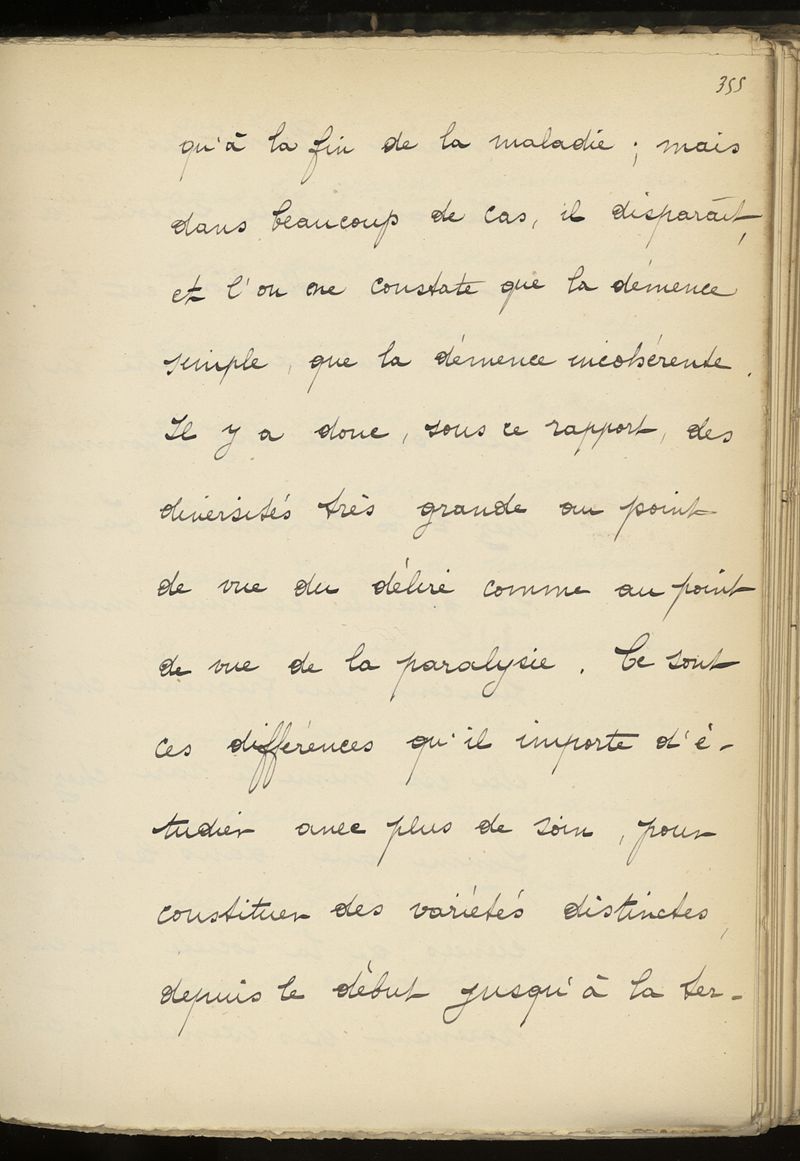 355
qu'à la fin de la maladie ; mais
dans beaucoup de cas, il disparaît,
et l'on ne constate que la démence
simple, que la démence incohérente.
Il y a donc, sous ce rapport, des
diversités très grande au point
de vue du délire comme au point
de vue de la paralysie. Ce sont
ces différences qu'il importe d'é-
tudier avec plus de soin, pour
constituer des variétés distinctes,
depuis le début jusqu'à la ter-